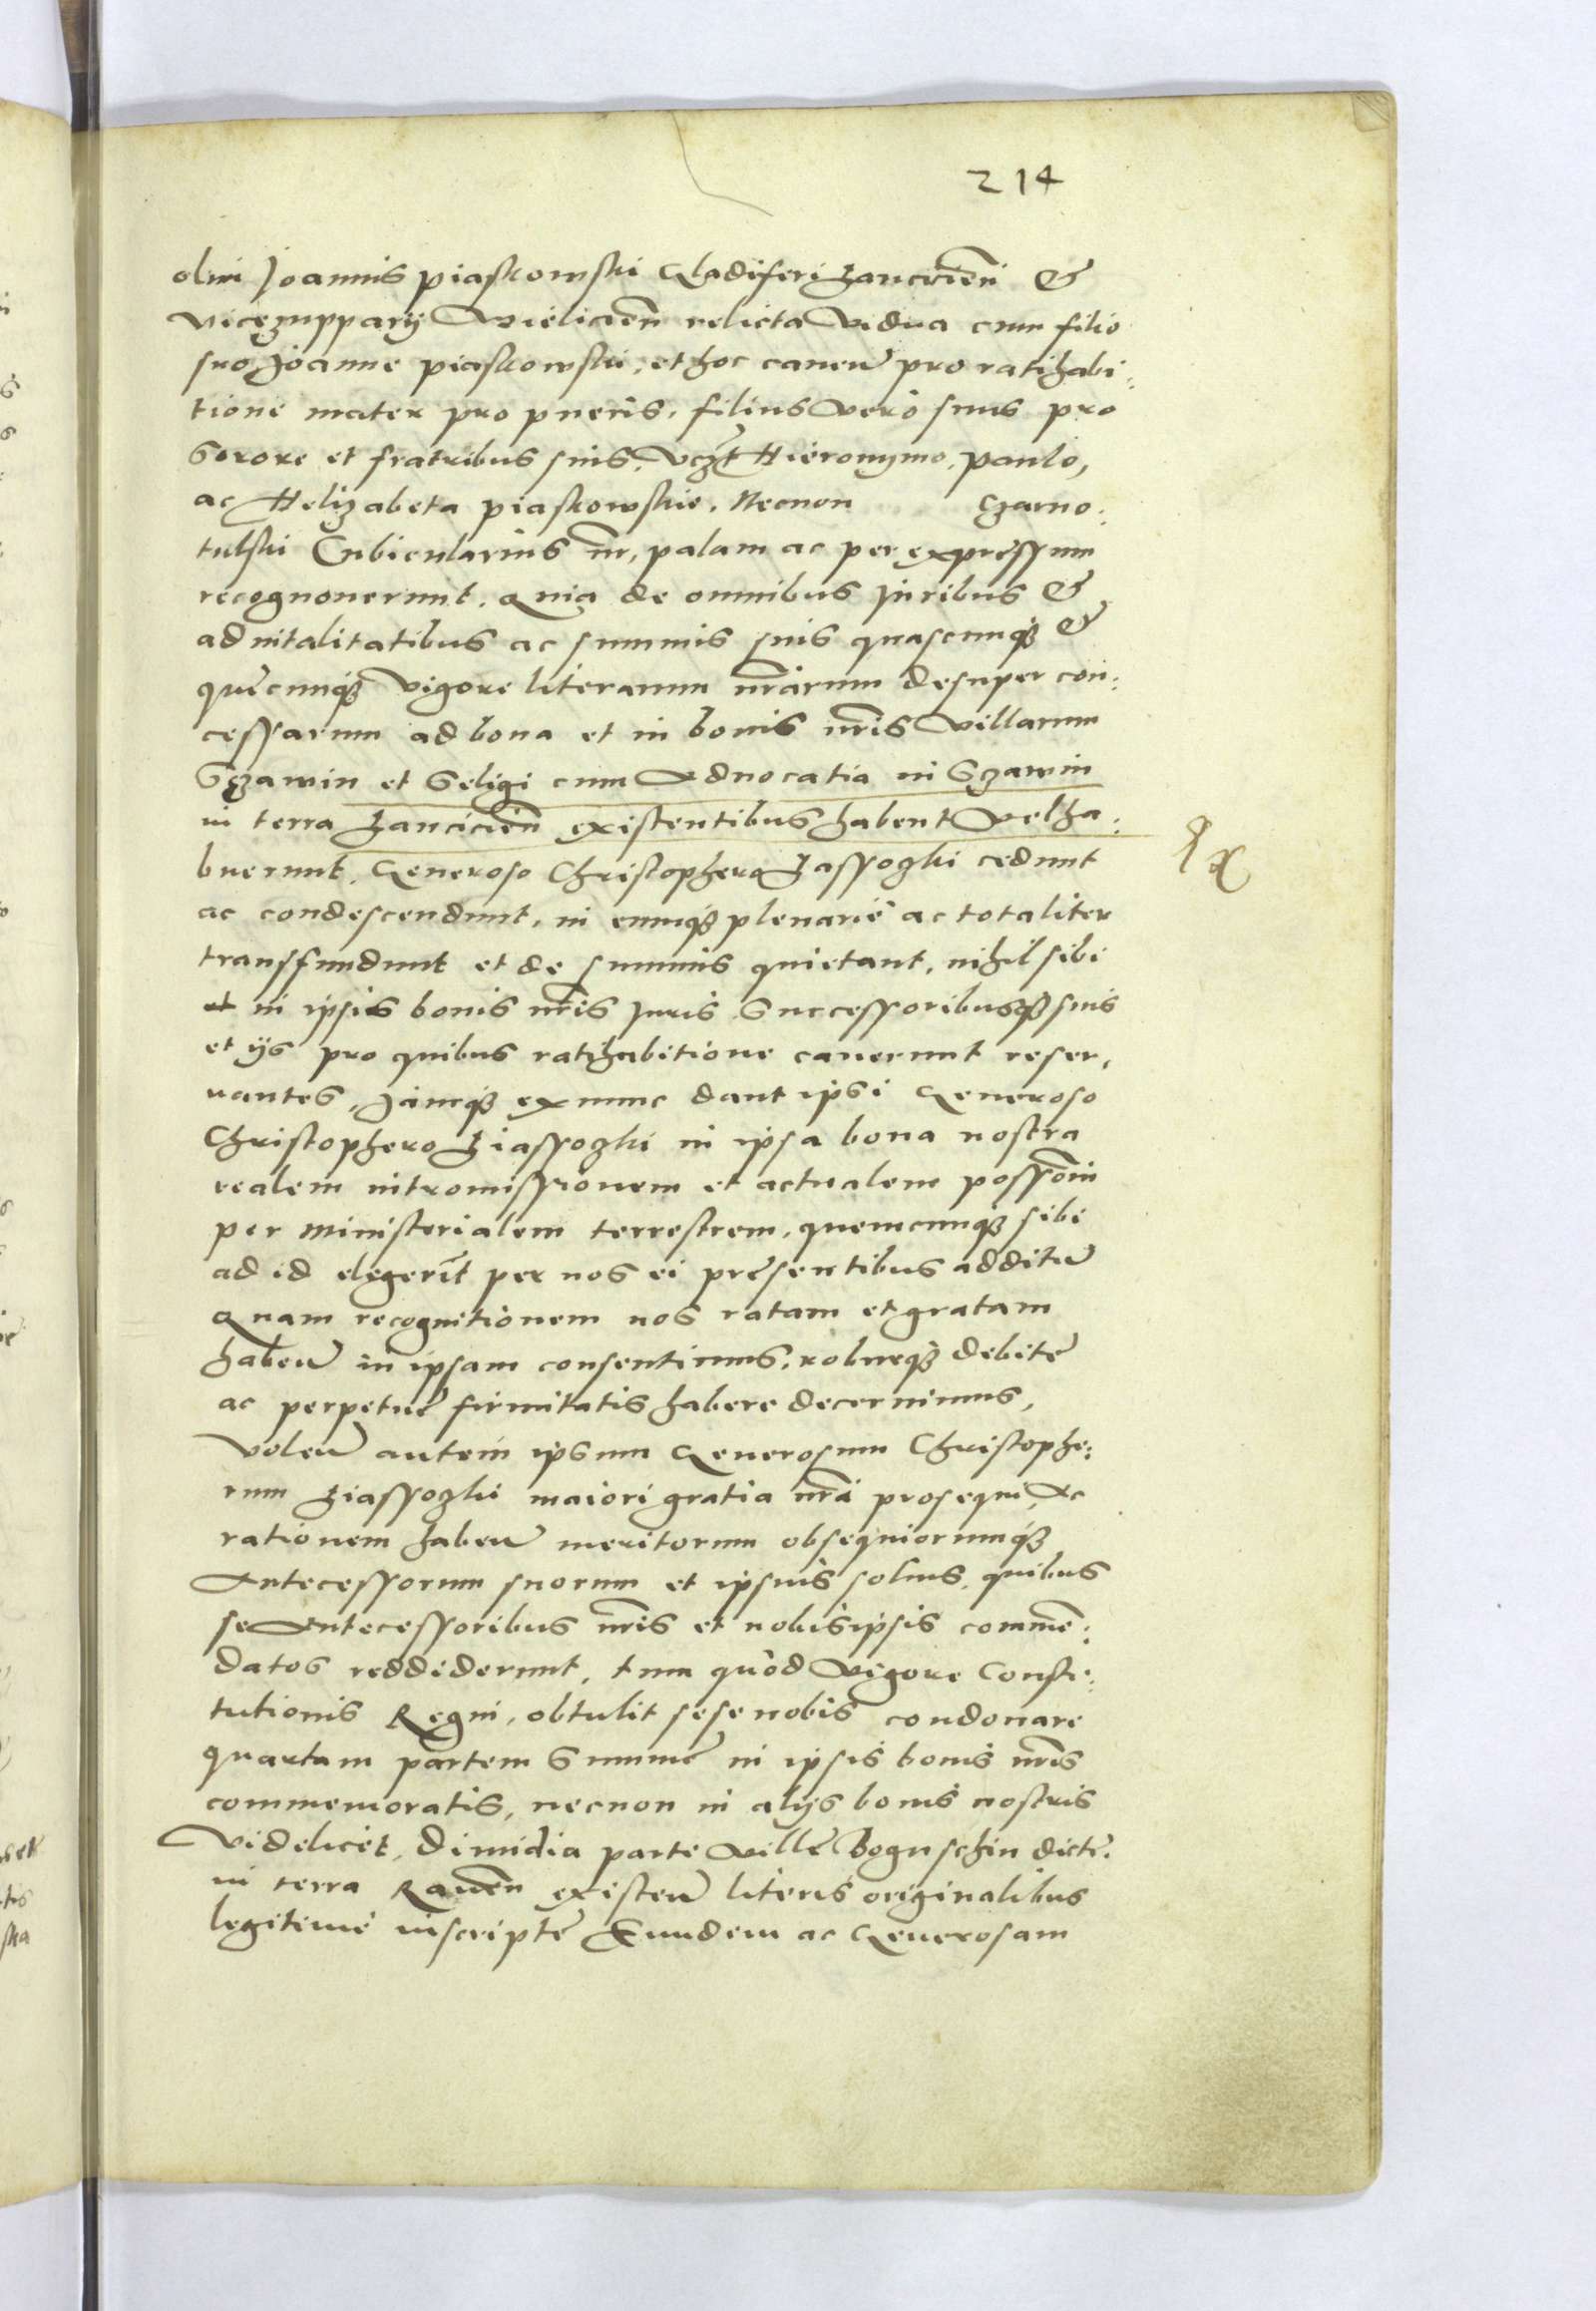 214
olim Joannis Piaskowski Gladiferi Lancicień &
Vicezupparij Vielicień relicta Vidua cum filio
suo Joanne Piaskowski, et hoc caven̄ pro ratihabi:
tione mater pro pueris, filius vero suus pro
Sorore et fratribus suis, Vczt Hieronymo, Paulo,
ac Helizabeta Piaskowskie. Necnon Czarno:
tulski Cubicularius nr̄, palam ac per expressum
recognouerunt. Quia de omnibus Juribus &
aduitalitatibus ac summis suis quascunq3 &
quecunq3 vigore literarum nr̄arum desuper con:
cessarum ad bona et in bonis nr̄is Villarum
Sczawin et Seligi cum Aduocatia in Sczawin
in terra Lancicień existentibus habent vel ha:
buerunt. Generoso Christophero Lassoczki cedunt
ac condescendunt, in eumq3 plenarie ac totaliter
transfundunt et de summis quietant, nihil sibi
et in ipsis bonis nr̄is Juris Successoribusq3 suis
et ijs pro quibus ratihabitione cauerunt reser,
uantes, Jamq3 ex nunc dant ipsi Generoso
Christophero Liassoczki in ipsa bona nostra
realem intromissionem et actualem possōem
per ministerialem terrestrem, quemcunq3 sibi
ad id elegerīt per nos ei presentibus additū
Quam recognitionem nos ratam et gratam
haben̄ in ipsam consentimus, roburq3 debite
ac perpetue firmitatis habere decernimus,
Volen̄ autem ipsum Generosum Christophe:
rum Liassoczki maiori gratia nr̄a prosequi, Ac
rationem haben̄ meritorum obsequiorumq3
Antecessorum suorum et ipsius solius, quibus
se Antecessoribus nr̄is et nobisipsis comme:
datos reddiderunt, tum quod vigore Consti:
tutionis Regni, obtulit sese nobis condonare
quartam partem Summe in ipsis bonis nr̄is
commemoratis, necnon in alijs bonis nostris
Videlicet, Dimidia parte ville Boguschin dicte.
in terra Rauen̄ existen̄ literis originalibus
legitime inscripte Eundem ac Generosam